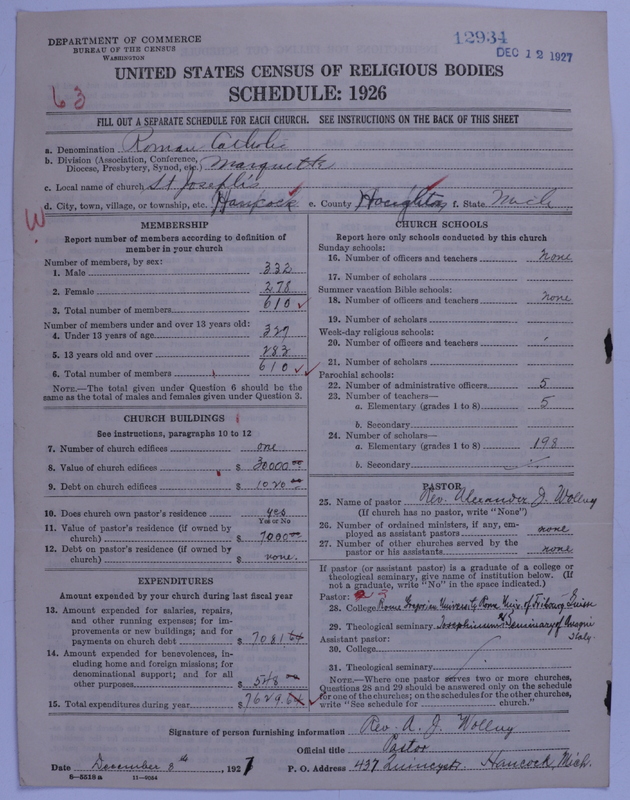 12934
DEC 12 1927
DEPARTMENT OF COMMERCE
BUREAU OF THE CENSUS
WASHINGTON
UNITED STATES CENSUS OF RELIGIOUS BODIES
SCHEDULE: 1926
63
FILL OUT A SEPARATE SCHEDULE FOR EACH CHURCH. SEE INSTRUCTIONS ON THE BACK OF THIS SHEET
a. Denomination Roman Catholic
b. Division (Association, Conference, Diocese, Presbytery, Synod, etc.) Marquette
c. Local name of church St Joseph's
d. City, town, village, or township, etc. Hancock e. County Houghton f. State Mich
W
MEMBERSHIP
Report number of members according to definition of
member in your church
Number of members, by sex:
1. Male 332
2. Female 278
3. Total number of members 610
Number of members under and over 13 years old:
4. Under 13 years of age 327
5. 13 years old and over 283
6. Total number of members 610
NOTE.—The total given under Question 6 should be
same as the total of males and females given under Question 3.
CHURCH BUILDINGS
See instructions, paragraphs 10 to 12
7. Number of church edifices one
8. Value of church edifices $ 30000 00
9. Debt on church edifices $ 1020 00
10. Does church own pastor's residence yes
Yes or No
11. Value of pastor's residence (if owned by
church) $ 7000 00
12. Debt on pastor's residence (if owned by
church) $ none.
EXPENDITURES
Amount expended by your church during last fiscal year
13. Amount expended for salaries, repairs,
and other running expenses; for im-
provements or new buildings; and for
payments on church debt $ 7081 64
14. Amount expended for benevolences, in-
cluding home and foreign missions; for
denominational support; and for all
other purposes $ 548 00
15. Total expenditures during year $ 7629.64
CHURCH SCHOOLS
Report here only schools conducted by this church
Sunday schools:
16. Number of officers and teachers none
17. Number of scholars
Summer vacation Bible schools:
18. Number of officers and teachers none
19. Number of scholars
Week-day religious schools:
20. Number of officers and teachers
21. Number of scholars
Parochial schools:
22. Number of administrative officers 5
23. Number of teachers—
a. Elementary (grades 1 to 8) 5
b. Secondary
24. Number of scholars—
a. Elementary (grades 1 to 8) 198
b. Secondary
PASTOR
25. Name of pastor Rev. Alexander J. Wollny
(If church has no pastor, write "None")
26. Number of ordained ministers, if any, em-
ployed as assistant pastors none
27. Number of other churches served by the
pastor or his assistants none
If pastor (or assistant pastor) is a graduate of a college or
theological seminary, give name of institution below. (If
not a graduate, write "No" in the space indicated.)
Pastor: 3
28. College Rome Univ. of Fribourg
29. Theological seminary Josephinum Seminary of
Italy.
Assistant pastor:
30. College
31. Theological seminary
NOTE.—Where one pastor serves two or more churches,
Questions 28 and 29 should be answered only on the schedule
for one of the churches; on the schedules for the other churches,
write "See schedule for church."
Signature of person furnishing information Rev. A. J. Wollny
Official title Pastor
Date December 8th, 1927 P. O. Address 437 Quincy st. Hancock, Mich.
8—5518a 11—9064